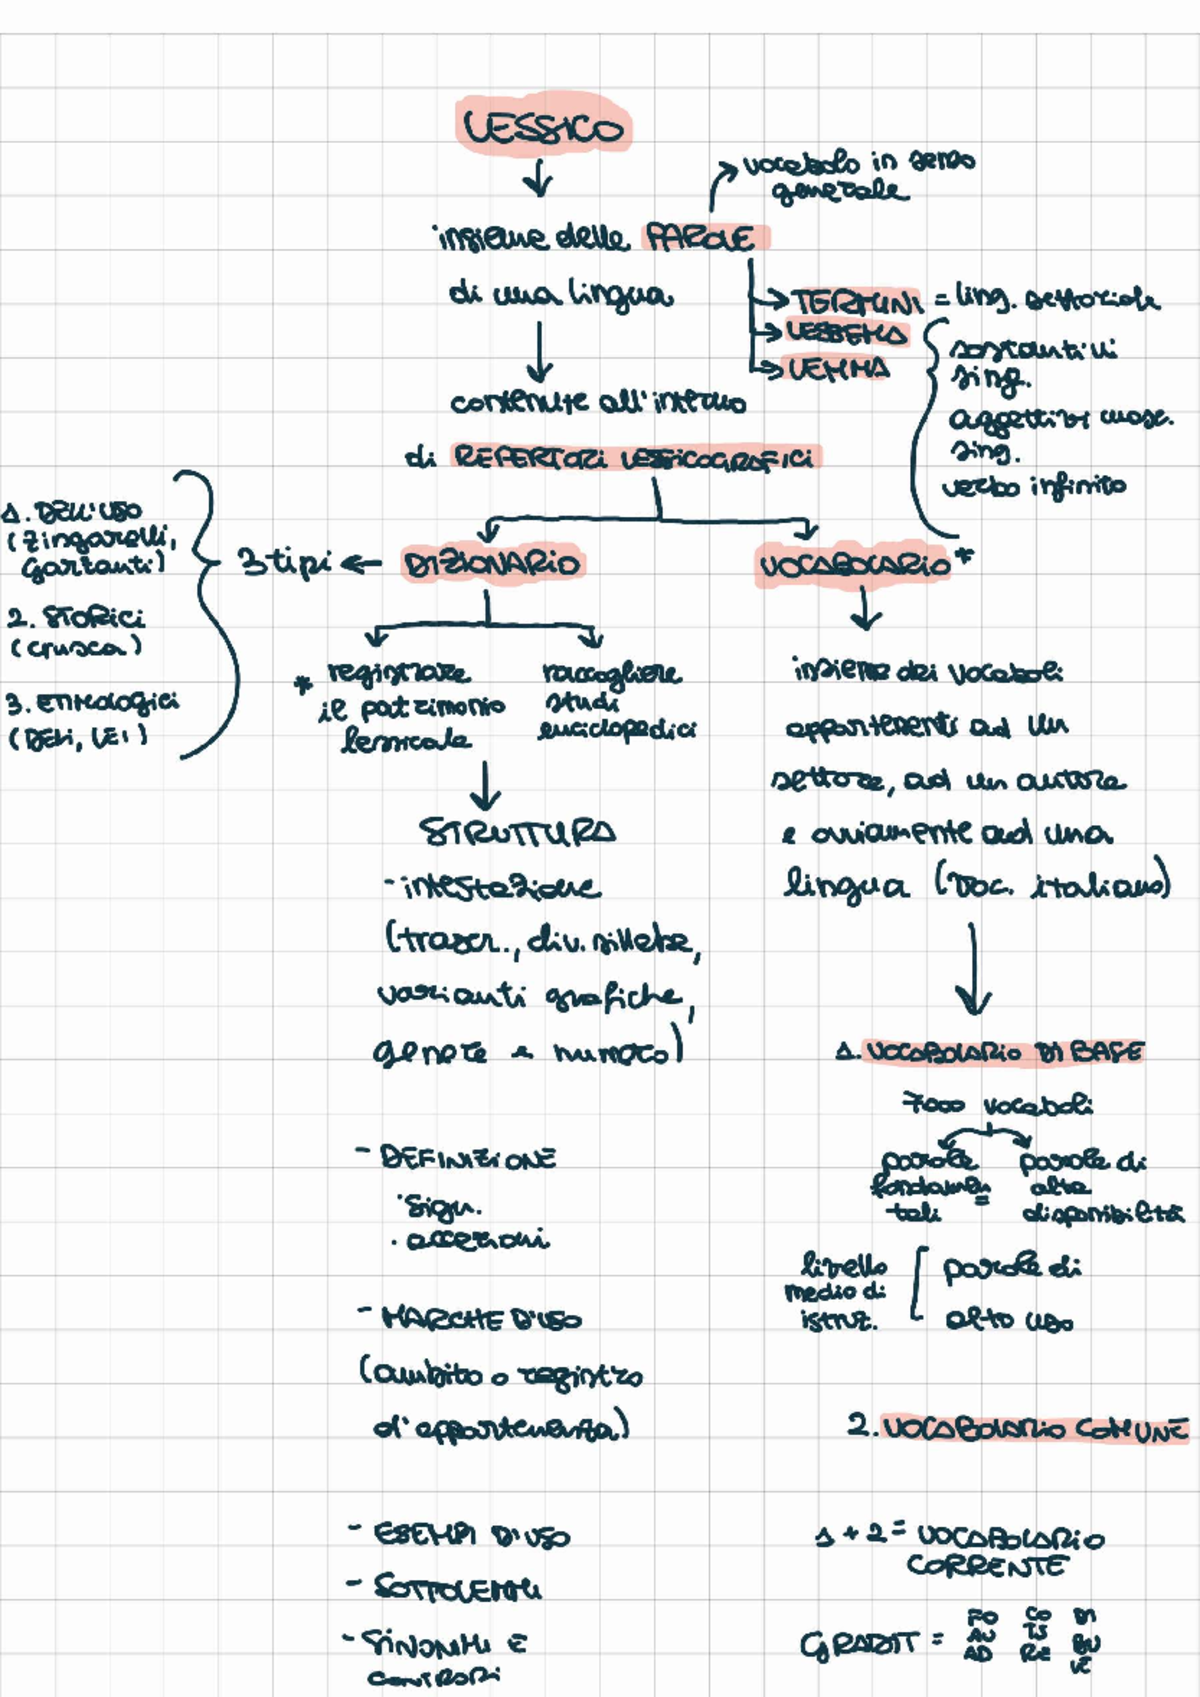 LESSICO
vocabolo in senso
generale
insieme delle PAROLE
di una lingua
TERMINI = ling. settoriale
LESSEMA
LEMMA
sostantivi
sing.
aggettivi masc.
sing.
verbo infinito
contenute all'interno
di REPERTORI LESSICOGRAFICI
1. DELL'USO
(Zingarelli,
Garzanti)
2. STORICI
(Crusca)
3. ETIMOLOGICI
(DELI, LEI)
3 tipi ← DIZIONARIO
VOCABOLARIO *
* registrare
il patrimonio
lessicale
raccogliere
studi
enciclopedici
STRUTTURA
- intestazione
(trascr., div. sillabe,
varianti grafiche,
genere e numero)
- DEFINIZIONE
· sign.
· accezioni
- MARCHE D'USO
(ambito o registro
d'appartenenza)
- ESEMPI D'USO
- SOTTOLEMMI
- SINONIMI E
CONTRARI
insieme dei vocaboli
appartenenti ad un
settore, ad un autore
e ovviamente ad una
lingua (voc. italiano)
1. VOCABOLARIO DI BASE
7000 vocaboli
parole
fondamen=
tali
parole di
alta
disponibilità
livello
medio di
istruz.
parole di
alto uso
2. VOCABOLARIO COMUNE
1 + 2 = VOCABOLARIO
CORRENTE
GRADIT =
FO CO DI
AU TS BU
AD RE LE